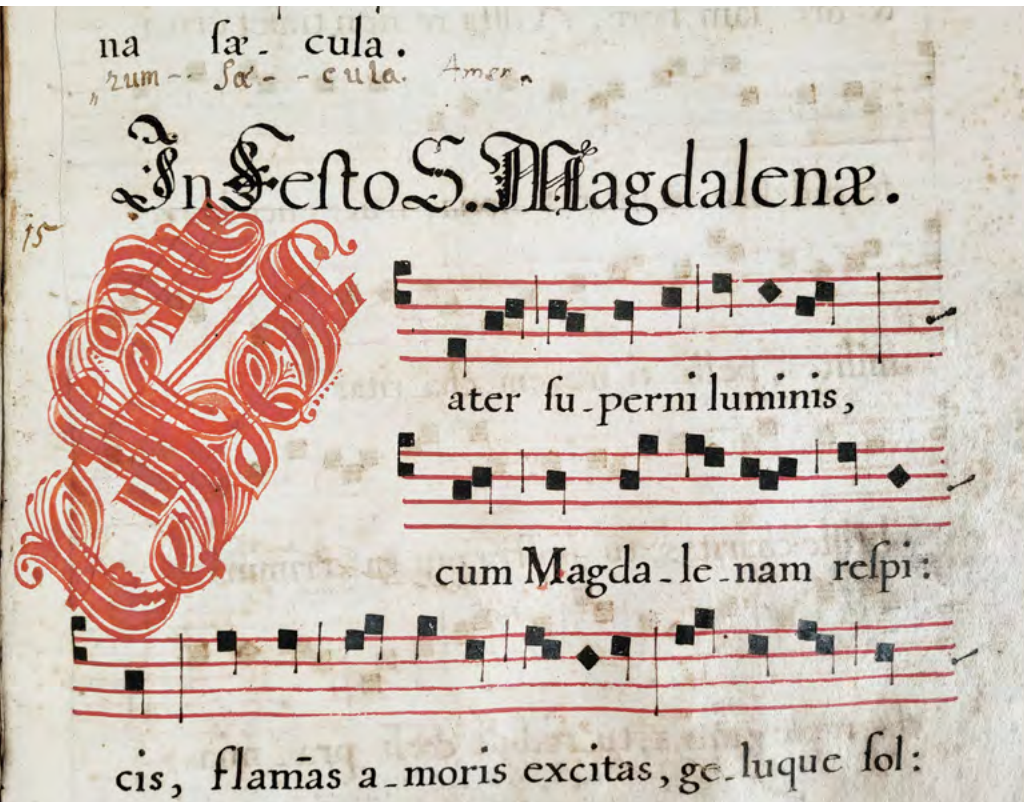 na ſæ - cula.
rum -- ſæ - - cula. Amen.
In Feſto S. Magdalenæ.
15
Pater ſu - perni luminis,
cum Magda - le - nam reſpi:
cis, flam̄as a - moris excitas, ge - luque ſol: